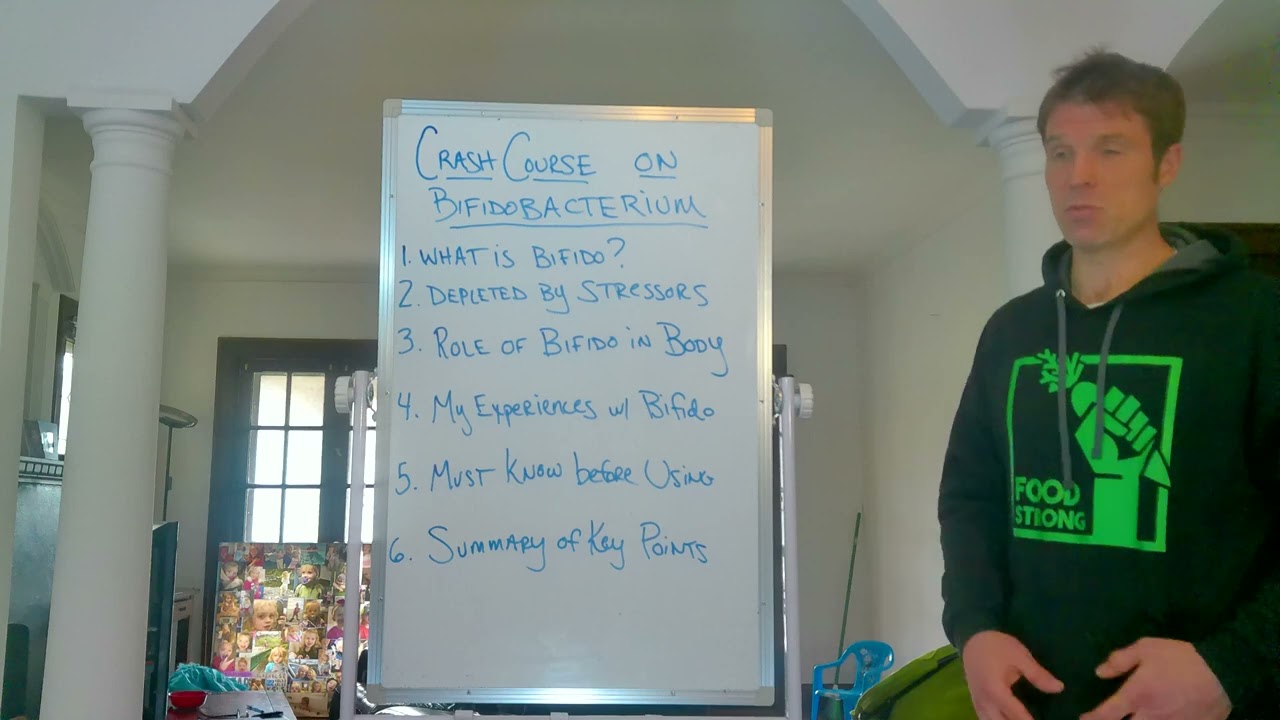 CRASH COURSE ON
BIFIDOBACTERIUM
1. WHAT IS BIFIDO?
2. DEPLETED BY STRESSORS
3. ROLE OF BIFIDO IN BODY
4. My Experiences w/ Bifido
5. Must Know before Using
6. Summary of Key Points
FOOD
STRONG